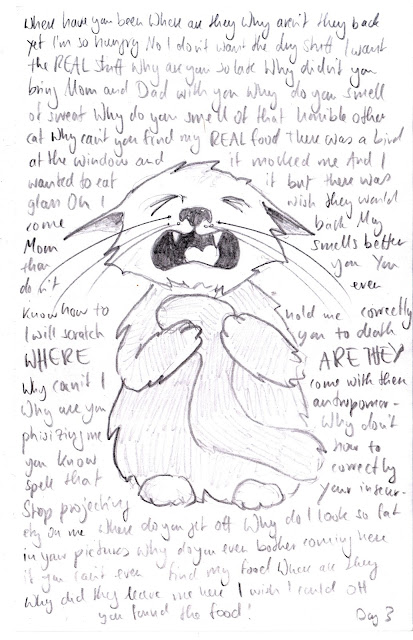 Where have you been Where are they Why aren't they back
yet I'm so hungry No I don't want the dry stuff I want
the REAL stuff Why are you so late Why didn't you
bring Mom and Dad with you Why do you smell
of sweat Why do you smell of that horrible other
cat Why can't you find my REAL food There was a bird
at the window and it mocked me And I
wanted to eat it but there was
glass Oh I wish they would
come back My
Mom smells better
than you You
don't even
know how to hold me correctly
I will scratch you to death
WHERE ARE THEY
Why can't I come with them
Why are you antropomor-
phisizing me Why don't
you know how to
spell that correctly
Stop projecting your insecur-
ety on me Where do you get off Why do I look so fat
in your pictures Why do you even bother coming here
if you can't even find my food Where are they
Why did they leave me here I wish I could
you found the food!
Day 3